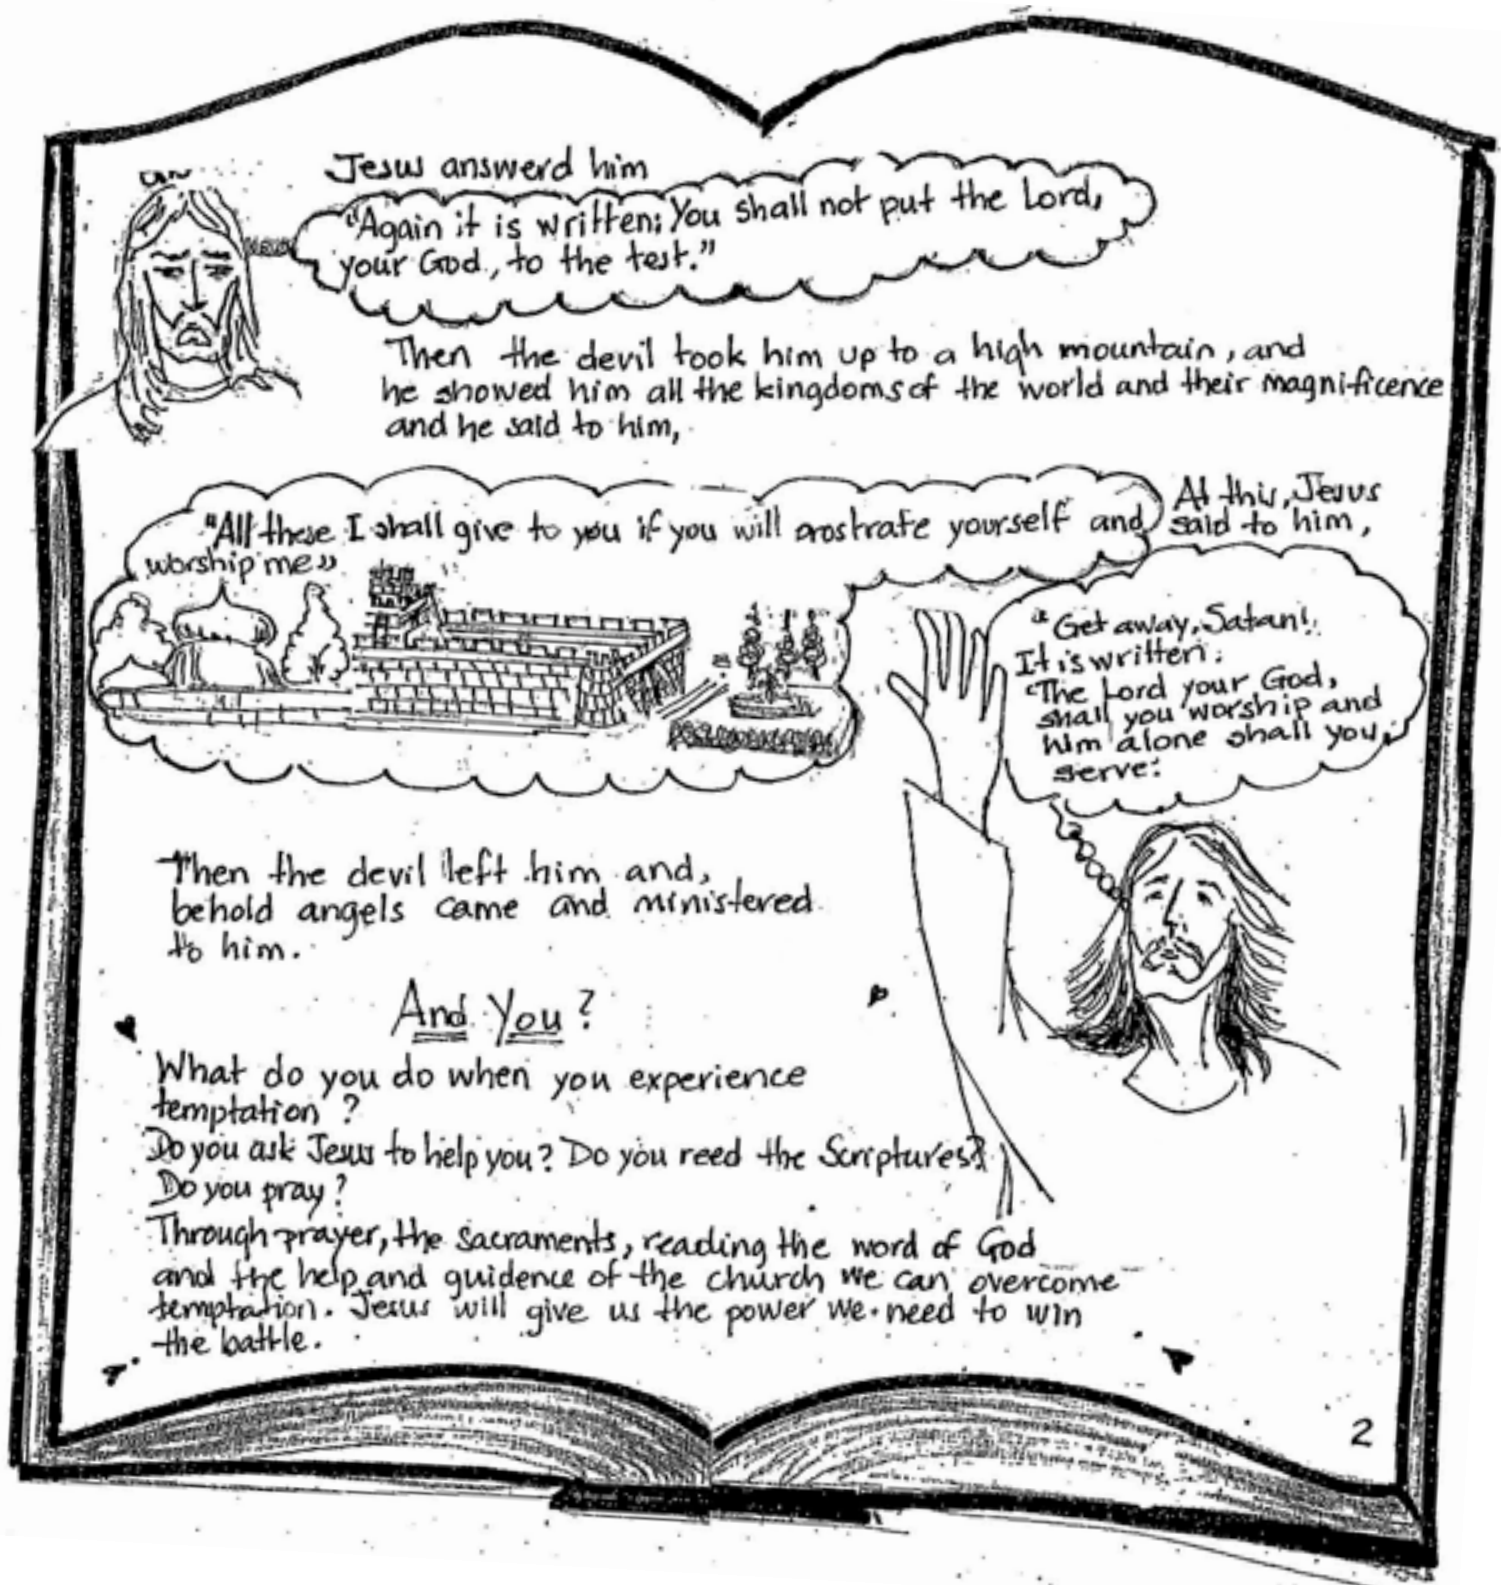 Jesus answerd him
"Again it is written: You shall not put the Lord,
your God, to the test."
Then the devil took him up to a high mountain, and
he showed him all the kingdoms of the world and their magnificence
and he said to him,
"All these I shall give to you if you will prostrate yourself and
worship me"
At this, Jesus
said to him,
"Get away, Satan!
It is written:
'The Lord your God,
shall you worship and
him alone shall you
serve.'
Then the devil left him and,
behold angels came and ministered
to him.
And You?
What do you do when you experience
temptation?
Do you ask Jesus to help you? Do you reed the Scriptures?
Do you pray?
Through prayer, the sacraments, reading the word of God
and the help and guidence of the church we can overcome
temptation. Jesus will give us the power we need to win
the battle.
2